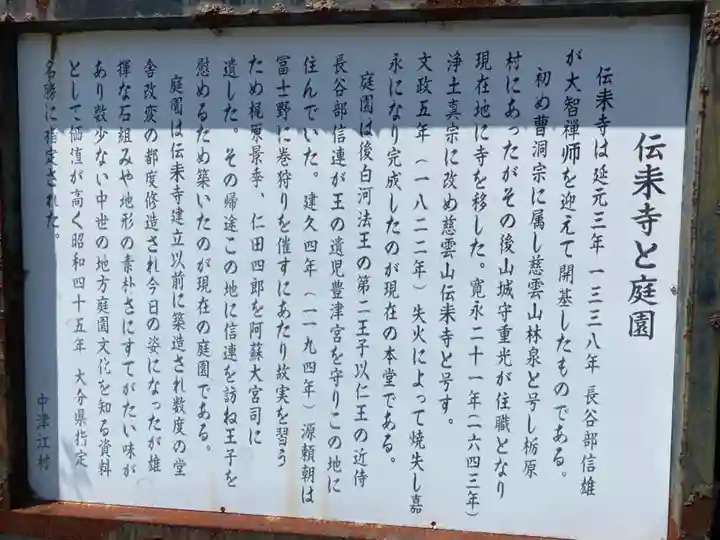 伝来寺と庭園
伝来寺は延元三年 一三三八年 長谷部信雄
が大智禅師を迎えて開基したものである。
初め曹洞宗に属し慈雲山林泉と号し栃原
村にあったがその後山城守重光が住職となり
現在地に寺を移した。寛永二十一年(一六四三年)
浄土真宗に改め慈雲山伝来寺と号す。
文政五年(一八二二年)失火によって焼失し嘉
永になり完成したのが現在の本堂である。
庭園は後白河法王の第二王子以仁王の近侍
長谷部信連が王の遺児豊津宮を守りこの地に
住んでいた。建久四年(一一九四年)源頼朝は
冨士野に巻狩りを催すにあたり故実を習う
ため梶原景季、仁田四郎を阿蘇大宮司に
遺した。その帰途この地に信連を訪ね王子を
慰めるため築いたのが現在の庭園である。
庭園は伝来寺建立以前に築造され数度の堂
舎改変の都度修造され今日の姿になったが雄
揮な石組みや地形の素朴さにすてがたい味が
あり数少ない中世の地方庭園文化を知る資料
として価値が高く昭和四十五年 大分県指定
名勝に指定された。
中津江村